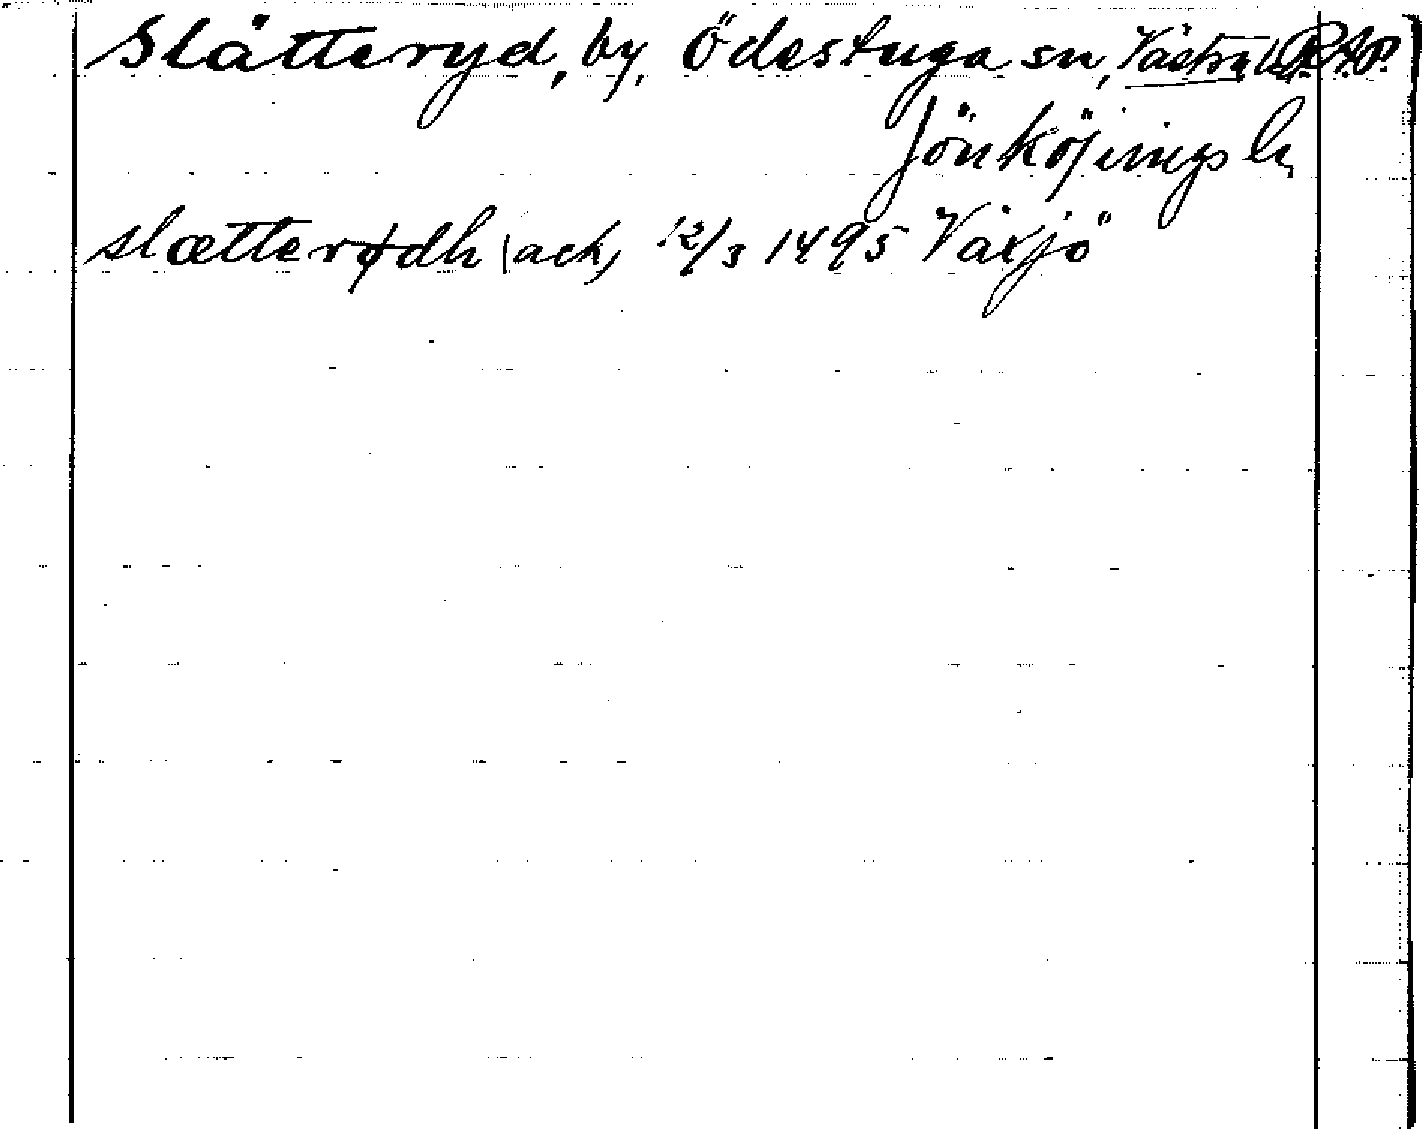 Slätteryd, by, Ödestuga sn, Västra h R.A.P.
Jönköpings l.
slætterødh (ack) 12/3 1495 Växjö